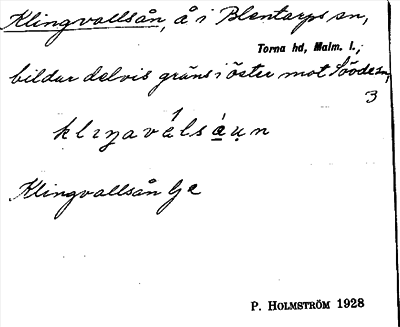 Klingvallsån, å i Blentarps sn,
Torna hd, Malm. l.;
bildar delvis gräns i öster mot Sövde sn,
3
klıŋaválsá̱ụn
Klingvallsån Gc
P. HOLMSTRÖM 1928